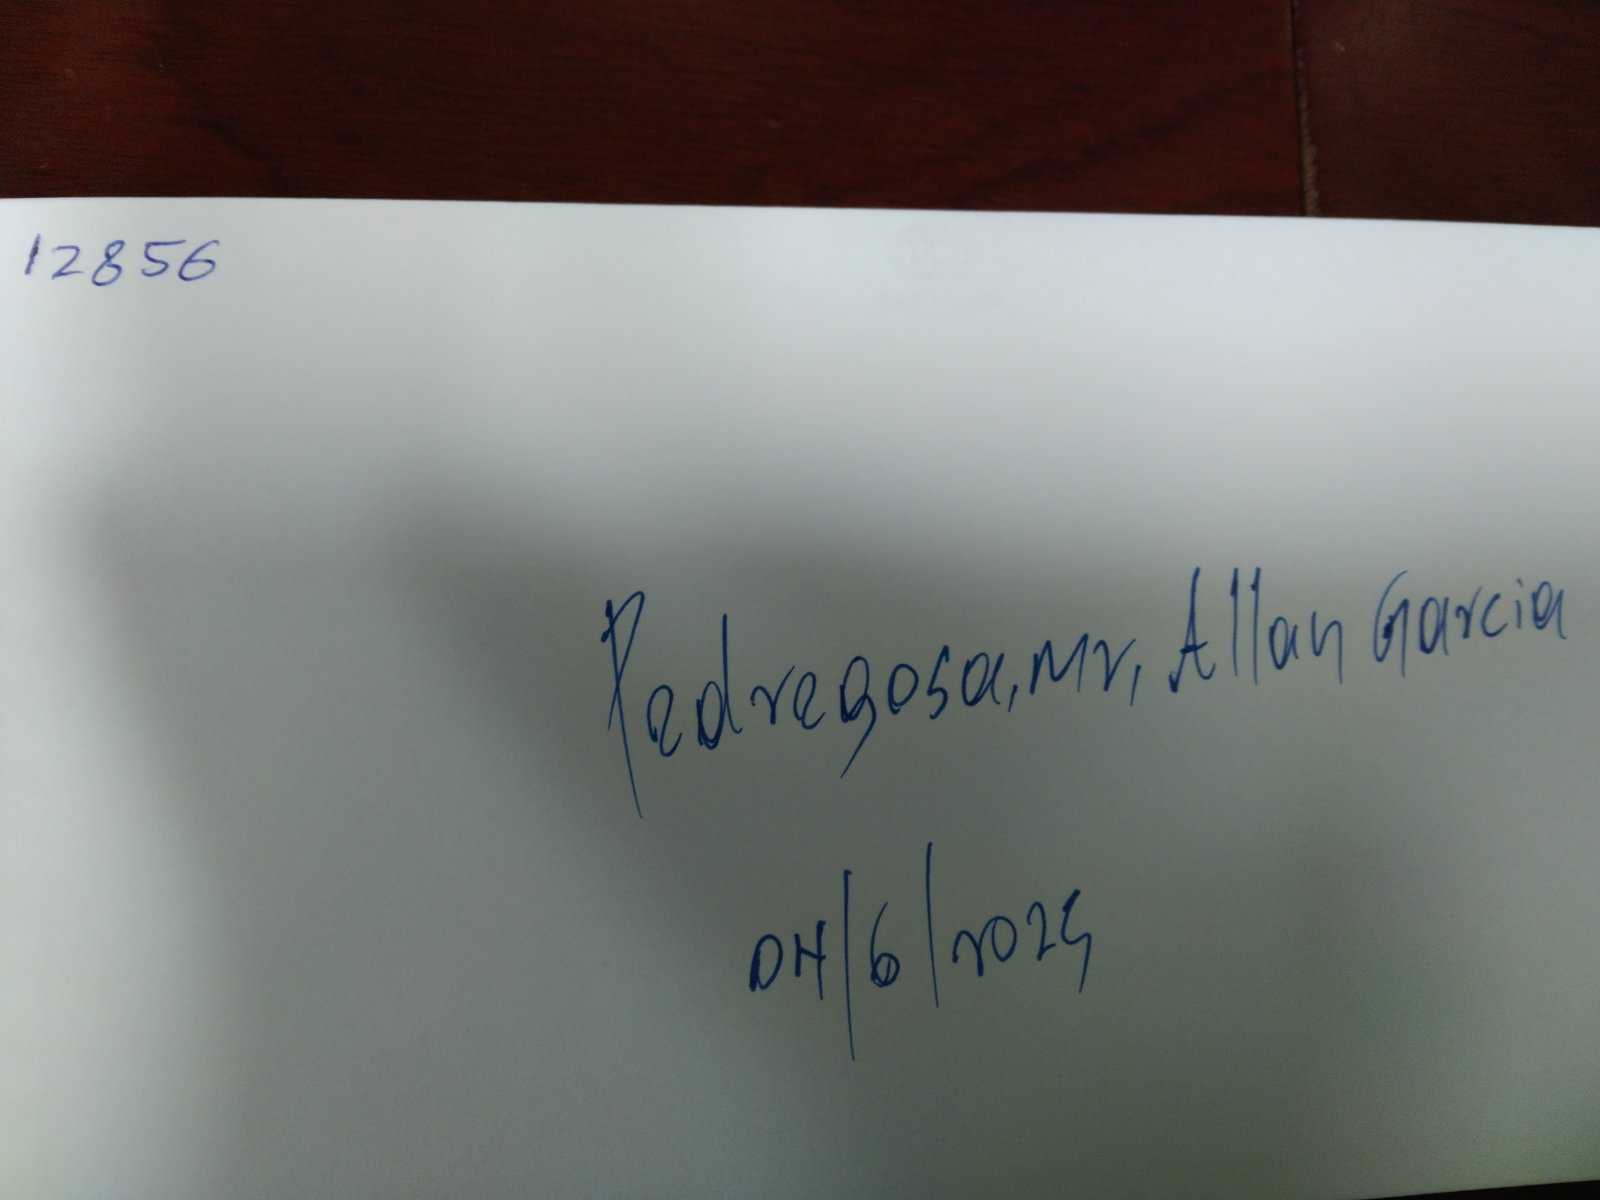 12856
Pedregosa, Mr, Allan Garcia
DH/6/2024